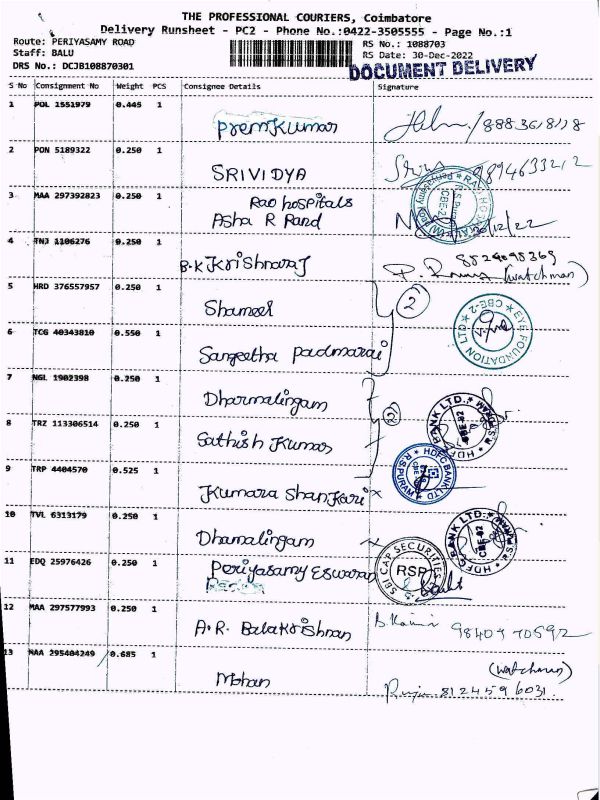 THE PROFESSIONAL COURIERS, Coimbatore
Delivery Runsheet - PC2 - Phone No.:0422-3505555 - Page No.:1
Route: PERIYASAMY ROAD
RS No.: 1088703
Staff: BALU
RS Date: 30-Dec-2022
DRS No.: DCJB108870301
DOCUMENT DELIVERY
S No Consignment No Weight PCS Consignee Details Signature
1 POL 1551979 0.445 1
Prem Kumar
2 PON 5189322 0.250 1
SRIVIDYA 9894633212
3 MAA 297392823 0.250 1
Rao hospitals
Asha R Rand 30/12/22
4 TNJ 1106276 0.250 1
B.K Krishnaraj 8824098369
(watchman)
5 HRD 376557957 0.250 1
Shameer 2
EYE FOUNDATION LTD CBE-2
6 TCG 40343810 0.550 1
Sangeetha Padmaraj
7 NGL 1902398 0.250 1
Dharmalingam
HDFC BANK LTD.
8 TRZ 113306514 0.250 1
Sathish Kumar
HDFC BANK LTD R.S.PURAM
9 TRP 4404570 0.525 1
Kumara Shankari
10 TVL 6313179 0.250 1
Dhamalingam
HDFC BANK LTD.
11 EDQ 25976426 0.250 1
Periyasamy Eswaran
SEI CAP SECURITIES RSP
12 MAA 297577993 0.250 1
A.R. Balakrishnan 9840970592
13 MAA 295404249 0.685 1
(watchman)
Mohan 8124596031